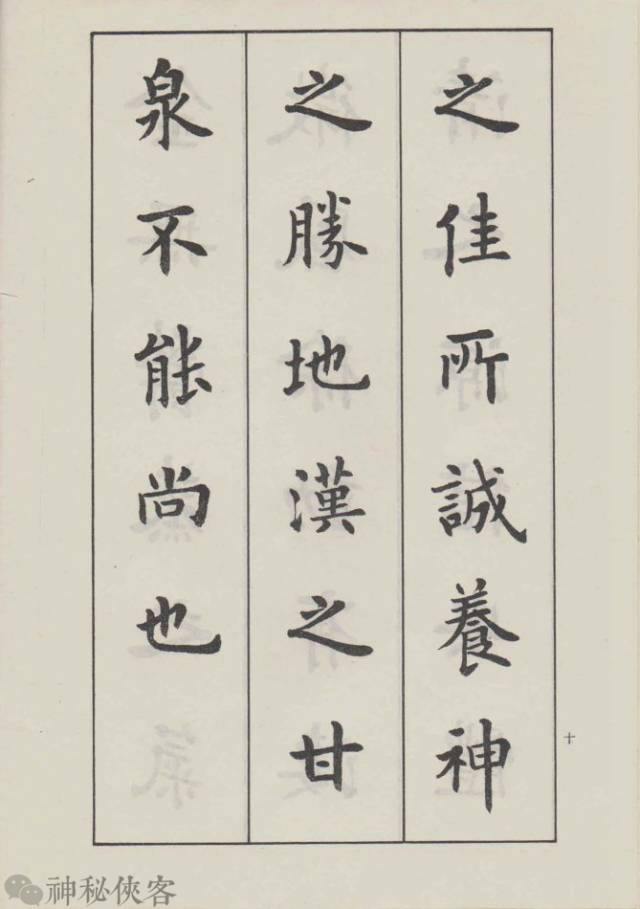 之佳所誠養神
之勝地漢之甘
泉不能尚也
十
神秘俠客